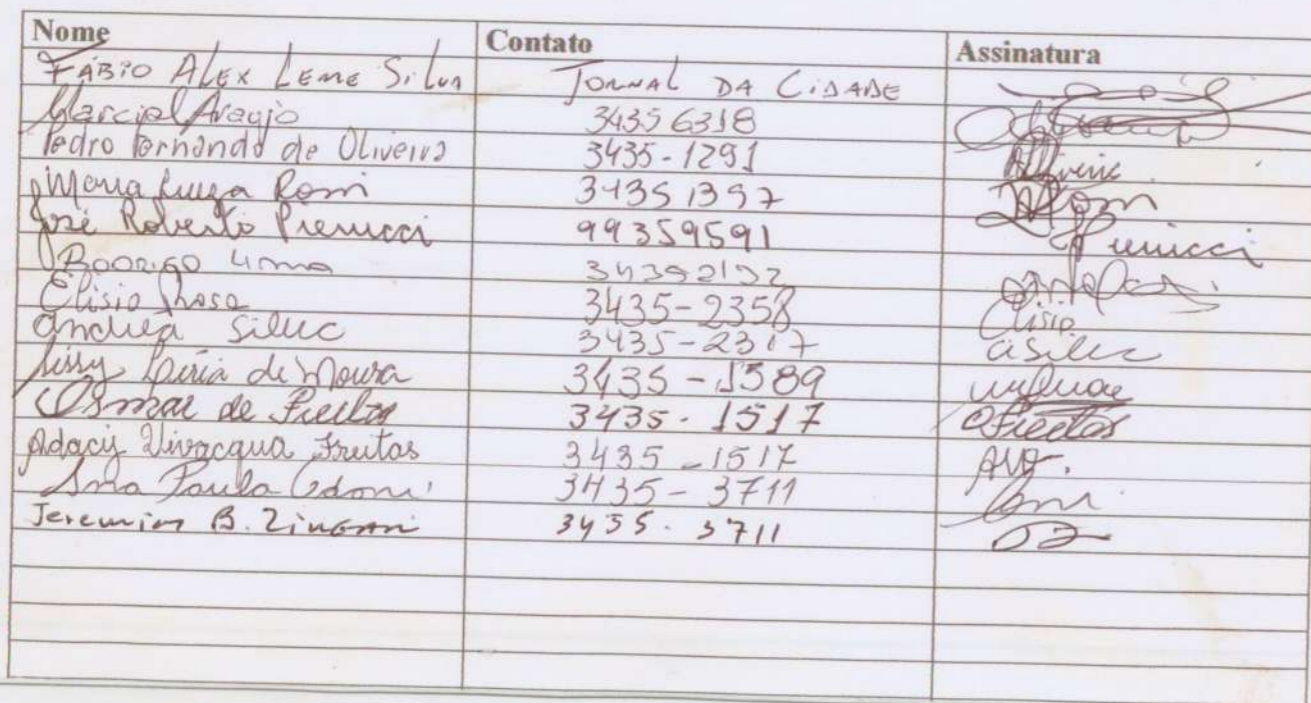 Nome Contato Assinatura
FÁBIO ALEX LEME SILVA JORNAL DA CIDADE
Marcial Araujo 34356318
Pedro Fernando de Oliveira 3435-1291 Oliveira
Maria Luiza Rossi 34351397 Rossi
José Roberto Pierucci 99359591 Pierucci
RODRIGO LIMA 34392132
Elisio Rosa 3435-2358 Elisio
Andrea Silva 3435-2317 asilva
de Moura 3435-1589
Osmar de Freitas 3435-1517 OFreitas
Adacy Vivacqua Freitas 3435-1517 AVF.
Ana Paula 3435-3711
Jeremias B. Zingari 3435-3711